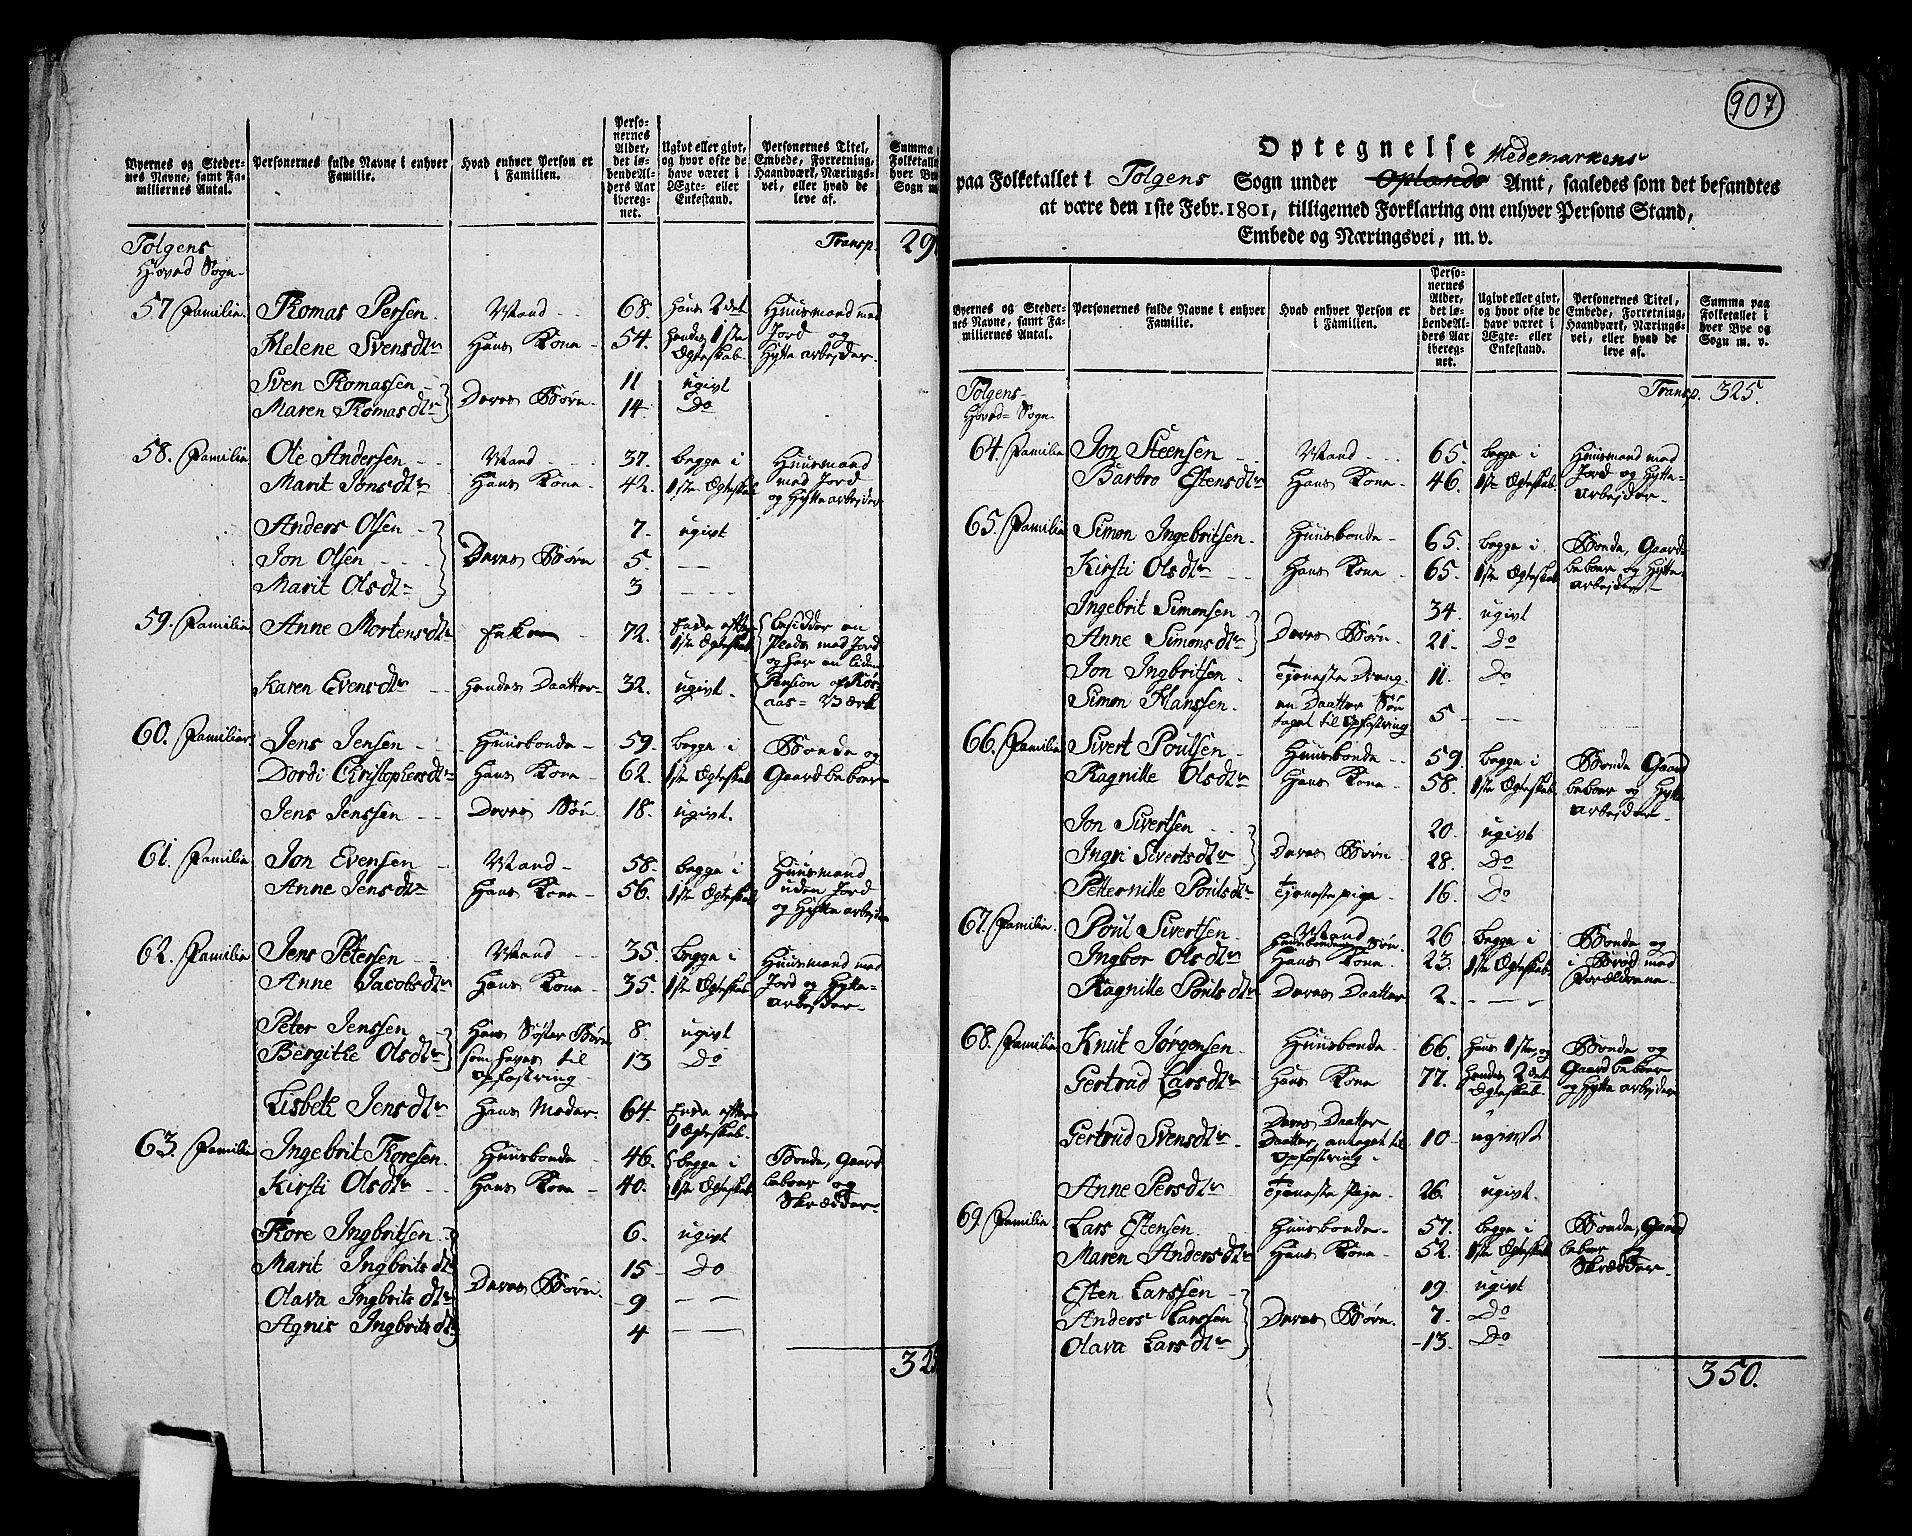 Byernes og Stedernes Navne, samt Familiernes Antal.
Personernes fulde Navne i enhver Familie.
Hvad enhver Person er i Familien.
Personernes Alder, det løbende Alders Aar iberegnet.
Ugivt eller givt, og hvor ofte de have været i Ægte- eller Enkestand.
Personernes Titel, Embede, Forretning, Haandværk, Næringsvei, eller hvad de leve af.
Summa Folketallet hver By Sogn m
Tolgens Hoved Sogn Transp. 29
57 Familie. Thomas Persen Mand 68. Hans 2det Huusmand med
Helene Svensdtr Hans Kone 54. Hendes 1ste Ægteskab. Jord og Hytte arbejder
Sven Thomassen 11 ugivt
Maren Thomasdtr Deres Børn 14. Do
58. Familie Ole Andersen Mand 37. begge i Huusmand
Marit Jonsdtr Hans Kone 42. 1ste Ægteskab med Jord og Hytte arbejder
Anders Olsen 7. ugivt
Jon Olsen Deres Børn 5. — —
Marit Olsdtr 3 — —
59. Familie Anne Mortensdtr Enke 72. Enke efter 1ste Ægteskab besidder en Plads med Jord
Karen Evensdtr Hendes Daatter 32. ugivt. og har en liden Pension af Røraas Værk
60. Familie Jens Jensen Huusbonde 59. begge i Bonde og
Dordi Christophersdtr Hans Kone 62. 1ste Ægteskab Gaardbeboer
Jens Jenssen Deres Søn 18. ugivt.
61. Familie Jon Evensen Mand 58. begge i Huusmand
Anne Jensdtr Hans Kone 56. 1ste Ægteskab uden Jord og Hytte arbejder
62. Familie Jens Petersen Mand 35. begge i Huusmand med
Anne Jacobsdtr Hans Kone 35. 1ste Ægteskab Jord og Hytte-arbejder
Peter Jenssen Hans Søster Børn 8. ugivt
Bergithe Olsdtr som haves til opfostring 13 Do
Lisbeth Jensdtr Hans Moder. 64. Enke efter 1 Ægteskab.
63. Familie Ingebrit Thoresen Huusbonde 46. begge i Bonde, Gaard
Kirsti Olsdtr Hans Kone 40. 1ste Ægteskab beboer og Skrædder
Thore Ingbritsen 6. ugivt
Marit Ingbritsdtr 15 Do
Olava Ingbritsdtr Deres Børn. 9 — —
Agnis Ingbritsdtr 4 — —
325
907
Optegnelse
paa Folketallet i Tolgens Sogn under Oplands Hedemarkens Amt, saaledes som det befandtes
at være den 1ste Febr. 1801, tilligemed Forklaring om enhver Persons Stand,
Embede og Næringsvei, m. v.
Byernes og Stedernes Navne, samt Familiernes Antal.
Personernes fulde Navne i enhver Familie.
Hvad enhver Person er i Familien.
Personernes Alder, det løbende Alders Aar iberegnet.
Ugivt eller givt, og hvor ofte de have været i Ægte- eller Enkestand.
Personernes Titel, Embede, Forretning, Haandværk, Næringsvei, eller hvad de leve af.
Summa paa Folketallet i hver Bye og Sogn m. v.
Tolgens Hoved- Sogn Transp. 325.
64. Familie Jon Steensen Mand 65. begge i Huusmand med
Barbro Estensdtr Hans Kone 46. 1ste Ægteskab Jord og Hytte-arbejder
65. Familie Simon Ingebritsen Huusbonde 65. begge i Bonde, Gaard
Kirsti Olsdtr Hans Kone 65. 1ste Ægteskab beboer og Hytte-arbejder
Ingebrit Simonsen 34. ugivt
Anne Simonsdtr Deres Børn 21. Do
Jon Ingbritsen Tjeneste Dreng 11. Do
Simon Hanssen en Daatter Søn taget til opfostring 5 — —
66. Familie Sivert Poulsen Huusbonde 59. begge i Bonde Gaard
Ragnille Olsdtr Hans Kone 58. 1ste Ægteskab beboer og Hytte arbejder
Jon Sivertsen 20. ugivt
Ingri Sivertsdtr Deres Børn 28. Do
Petternille Poulsdtr Tjenestepige 16. Do
67. Familie. Poul Sivertsen Mand Huusbondens Søn. 26 begge i Bonde og
Ingbor Olsdtr Hans Kone 23. 1ste Ægteskab i Brød med Forældrene
Ragnille Poulsdtr Deres Daatter 2. — —
68. Familie Knut Jørgensen Huusbonde 66. Hans 1ste, og Bonde og
Gertrud Larsdtr Hans Kone 77. Hendes 2det Ægteskab. Gaardbeboer og Hytte arbejder
Gertrud Svensdtr Deres Daatter Daatter, antaget til opfostring 10 ugivt
Anne Persdtr Tjeneste Pige 26. ugivt.
69. Familie. Lars Estensen Huusbonde 57. begge i Bonde, Gaard
Maren Andersdtr Hans Kone 52. 1ste Ægteskab beboer og Skrædder
Esten Larssen 19. ugivt
Anders Larssen Deres Børn. 7. Do
Olava Larsdtr 13. Do
350.